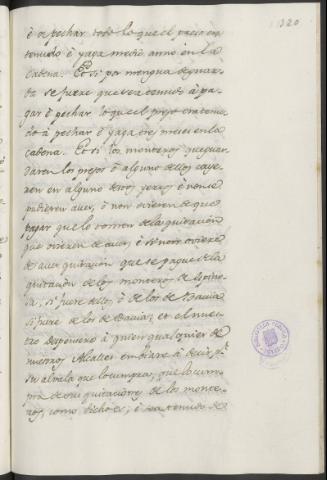 320
é á pechar todo lo que el preso era
tenudo é yaga medio anno en la
Cadena. Et si por mengua de guar
da se fuere que sea tenudo á pa
gar é pechar lo que el preso era tenu
do á pechar é yaga tres meses en la
cadena. Et si los monteros que guar
daren los presos ó alguno dellos caye
ren en alguno destos yerros é non se
pudieren aver, é non ovieren de que
pagar que lo tomen de la quitación
que ovieren de aver, é si non oviere
de aver quitación que se pague de la
quitación de los monteros de Espino
sa, si fuere dellos, é de los de Bavia
si fuere de los de Bavia; et el nues
tro despensero á quien qualquier de
nuestros Alcalles enbiare á decir pr.
su alvala que lo cumpra, que lo cum
pra de las quitaciones de los monte
ros, como dicho es; é sea tenudo de